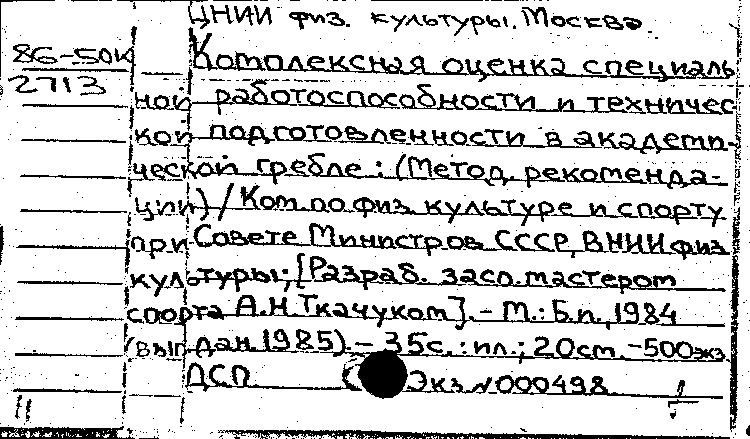 ЦНИИ физ. культуры. Москва.
86-50К
2713
Комплексная оценка специаль
ной работоспособности и техничес
кой подготовленности в академи-
ческой гребле: (Метод. рекоменда-
ции) / Ком. по физ. культуре и спорту
при Совете Министров СССР, ВНИИ физ
культуры; [Разраб. засл. мастером
спорта А.Н. Ткачуком]. - М.: Б.и., 1984
(вып. дан. 1985). - 35 с. : ил.; 20 см. - 500 экз.
ДСП Экз. N 000498
11